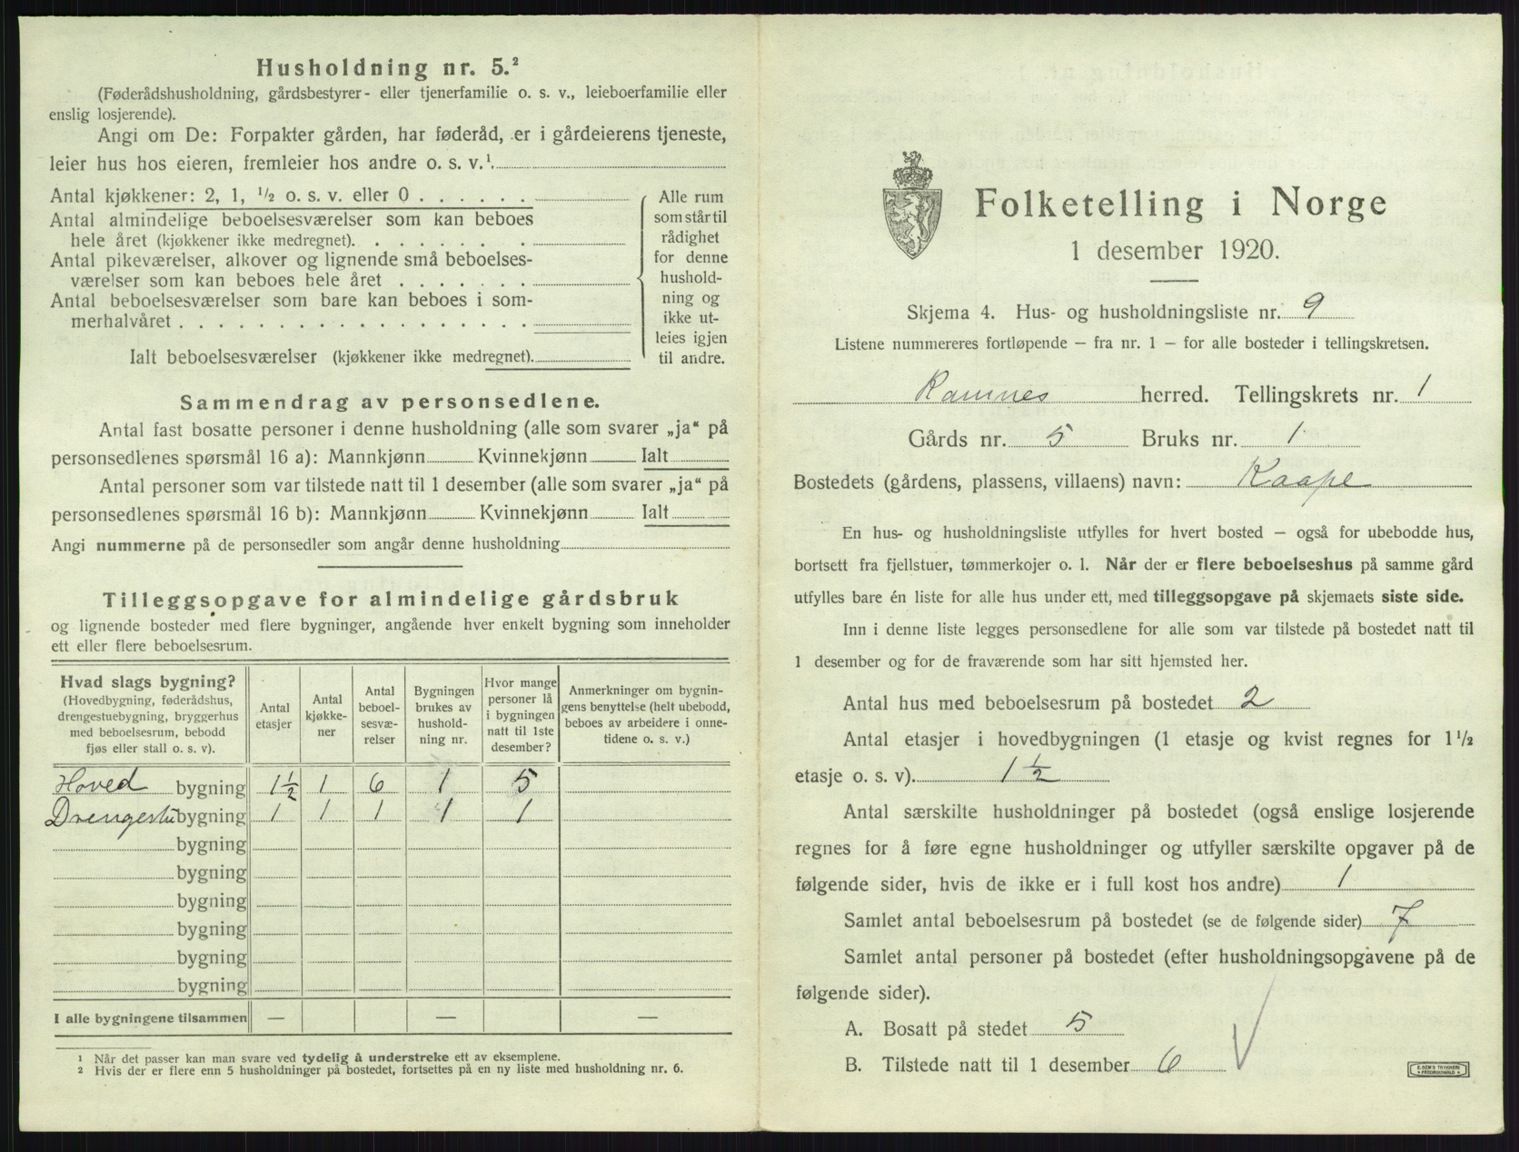 Husholdning nr. 5.²
(Føderådshusholdning, gårdsbestyrer- eller tjenerfamilie o. s. v., leieboerfamilie eller
enslig losjerende).
Angi om De: Forpakter gården, har føderåd, er i gårdeierens tjeneste,
leier hus hos eieren, fremleier hos andre o. s. v.¹
Antal kjøkkener: 2, 1, ½ o. s. v. eller 0
Antal almindelige beboelsesværelser som kan beboes
hele året (kjøkkener ikke medregnet).
Antal pikeværelser, alkover og lignende små beboelses-
værelser som kan beboes hele året
Antal beboelsesværelser som bare kan beboes i som-
merhalvåret
Ialt beboelsesværelser (kjøkkener ikke medregnet).
Alle rum
som står til
rådighet
for denne
hushold-
ning og
ikke ut-
leies igjen
til andre.
Sammendrag av personsedlene.
Antal fast bosatte personer i denne husholdning (alle som svarer „ja“ på
personsedlenes spørsmål 16 a): Mannkjønn Kvinnekjønn Ialt
Antal personer som var tilstede natt til 1 desember (alle som svarer „ja“ på
personsedlenes spørsmål 16 b): Mannkjønn Kvinnekjønn Ialt
Angi nummerne på de personsedler som angår denne husholdning
Tilleggsopgave for almindelige gårdsbruk
og lignende bosteder med flere bygninger, angående hver enkelt bygning som inneholder
ett eller flere beboelsesrum.
Hvad slags bygning?
(Hovedbygning, føderådshus,
drengestuebygning, bryggerhus
med beboelsesrum, bebodd
fjøs eller stall o. s. v).
Antal
etasjer
Antal
kjøkke-
ner
Antal
beboel-
sesvæ-
relser
Bygningen
brukes av
hushold-
ning nr.
Hvor mange
personer lå
i bygningen
natt til 1ste
desember?
Anmerkninger om bygnin-
gens benyttelse (helt ubebodd,
beboes av arbeidere i onne-
tidene o. s. v.)
Hoved bygning 1½ 1 6 1 5
Drengestu bygning 1 1 1 1 1
bygning
bygning
bygning
bygning
bygning
bygning
I alle bygningene tilsammen — — —
¹ Når det passer kan man svare ved tydelig å understreke ett av eksemplene.
² Hvis der er flere enn 5 husholdninger på bostedet, fortsettes på en ny liste med husholdning nr. 6.
Folketelling i Norge
1 desember 1920.
Skjema 4. Hus- og husholdningsliste nr. 9
Listene nummereres fortløpende — fra nr. 1 — for alle bosteder i tellingskretsen.
Ramnes herred. Tellingskrets nr. 1
Gårds nr. 5 Bruks nr. 1
Bostedets (gårdens, plassens, villaens) navn: Kaape
En hus- og husholdningsliste utfylles for hvert bosted — også for ubebodde hus,
bortsett fra fjellstuer, tømmerkojer o. l. Når der er flere beboelseshus på samme gård
utfylles bare én liste for alle hus under ett, med tilleggsopgave på skjemaets siste side.
Inn i denne liste legges personsedlene for alle som var tilstede på bostedet natt til
1 desember og for de fraværende som har sitt hjemsted her.
Antal hus med beboelsesrum på bostedet 2
Antal etasjer i hovedbygningen (1 etasje og kvist regnes for 1½
etasje o. s. v). 1½
Antal særskilte husholdninger på bostedet (også enslige losjerende
regnes for å føre egne husholdninger og utfyller særskilte opgaver på de
følgende sider, hvis de ikke er i full kost hos andre) 1
Samlet antal beboelsesrum på bostedet (se de følgende sider) 7
Samlet antal personer på bostedet (efter husholdningsopgavene på de
følgende sider).
A. Bosatt på stedet 5
B. Tilstede natt til 1 desember 6